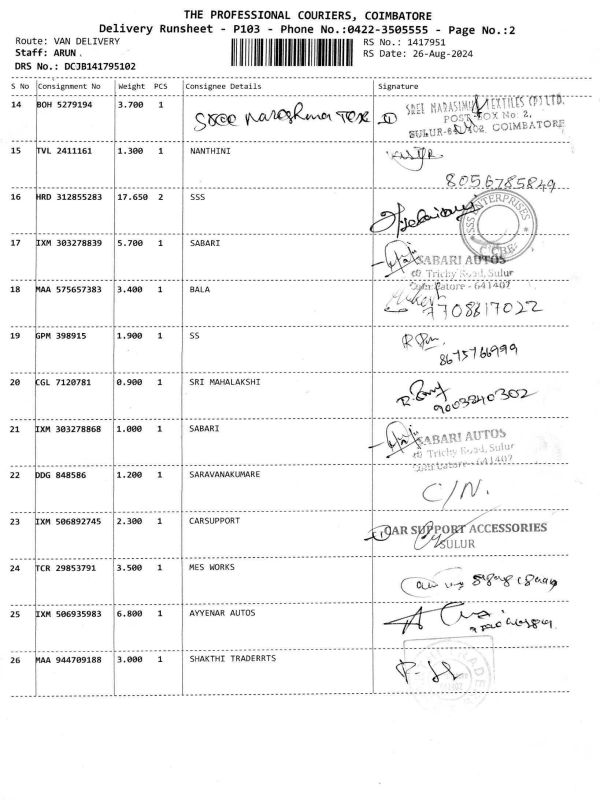 THE PROFESSIONAL COURIERS, COIMBATORE
Delivery Runsheet - P103 - Phone No.:0422-3505555 - Page No.:2
Route: VAN DELIVERY
Staff: ARUN .
DRS No.: DCJB141795102
RS No.: 1417951
RS Date: 26-Aug-2024
S No Consignment No Weight PCS Consignee Details Signature
14 BOH 5279194 3.700 1
SREE NARASIMHA TEXTILES (P) LTD.
POST BOX No: 2,
SULUR- COIMBATORE
15 TVL 2411161 1.300 1 NANTHINI
8056785849
16 HRD 312855283 17.650 2 SSS
SSS ENTERPRISES
17 IXM 303278839 5.700 1 SABARI
SABARI AUTOS
Trichy Road, Sulur
Coimbatore - 641402
18 MAA 575657383 3.400 1 BALA
7708817022
19 GPM 398915 1.900 1 SS
8675766999
20 CGL 7120781 0.900 1 SRI MAHALAKSHI
9003240302
21 IXM 303278868 1.000 1 SABARI
SABARI AUTOS
Trichy Road, Sulur
Coimbatore - 641402
22 DDG 848586 1.200 1 SARAVANAKUMARE
C/N.
23 IXM 506892745 2.300 1 CARSUPPORT
CAR SUPPORT ACCESSORIES
SULUR
24 TCR 29853791 3.500 1 MES WORKS
25 IXM 506935983 6.800 1 AYYENAR AUTOS
26 MAA 944709188 3.000 1 SHAKTHI TRADERRTS